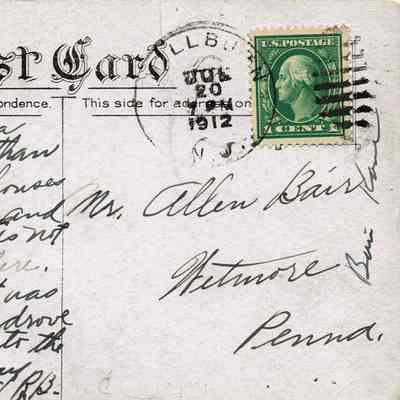 st Card
ondence.
This side for
LLBU
JUL
20
PM
1912
N. J.
U.S. POSTAGE
1 CENT 1
than
houses
and
is not
here.
was
drove
to the
R.B.
Mr. Allen Bair
Wetmore
Penna.